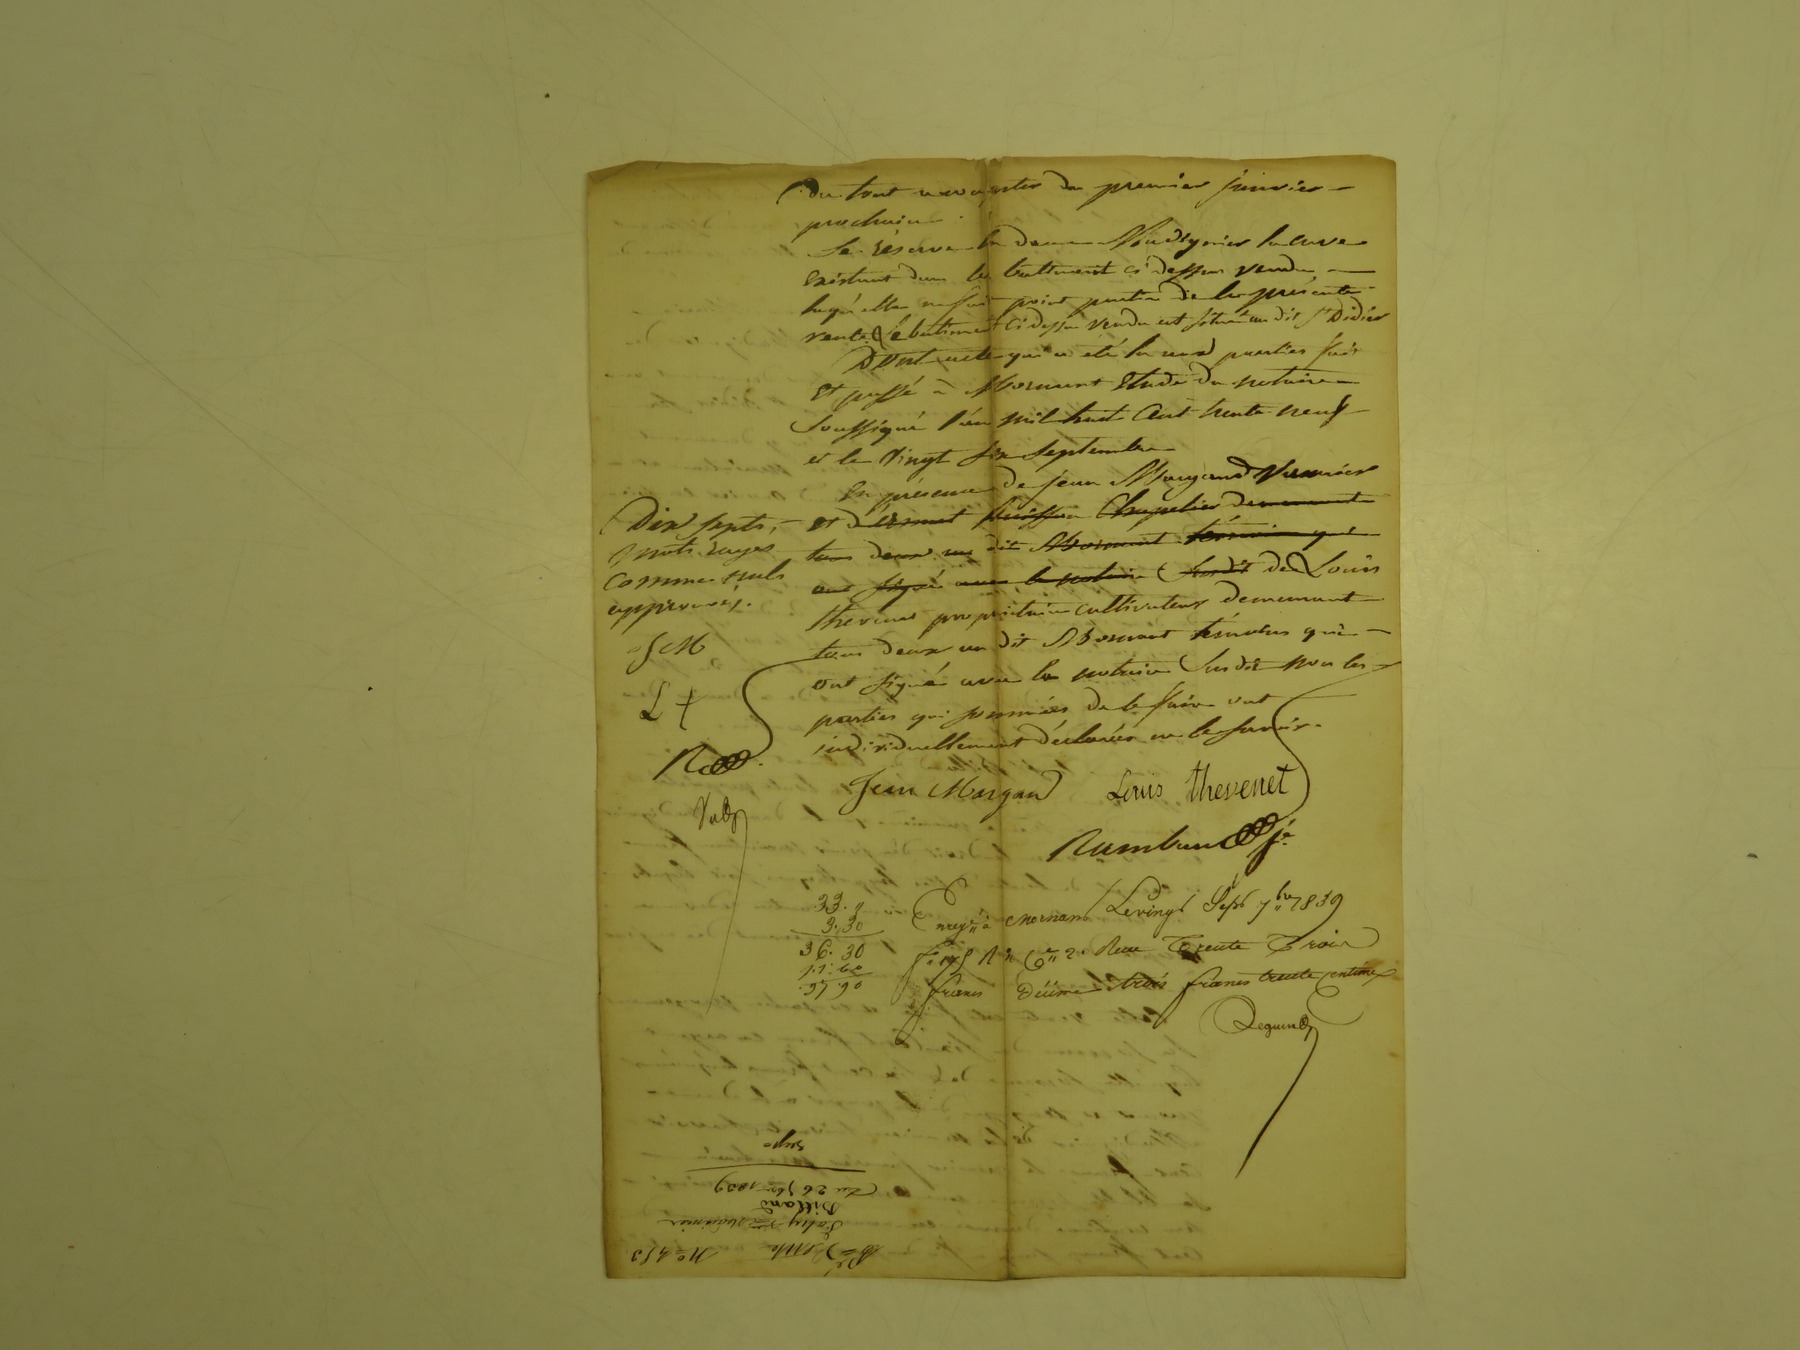 du tout à compter du premier janvier
prochain.
Se réserve la dame la cuve
existant dans le batiment ci dessus vendu
laquelle ne fait point partie de la présente
vente. Le batiment ci dessus vendu est situé au dit St Didier
Dont acte qui a été lu aux parties fait
et passé à Mornant Etude du notaire
soussigné l'an mil huit cent trente neuf
et le vingt six septembre
En présence de jean Margand
et de Chapelier demeurant
tous deux au dit Mornant témoins qui
ont signé avec le notaire susdit de Louis
thevenet propriétaire cultivateur demeurant
tous deux au dit Mornant témoins qui
ont signé avec le notaire susdit non les
parties qui sommées de le faire ont
individuellement déclarées ne le savoir.
Dix septs
mots rayés
comme nuls
approuvés.
JM
L t
Jean Margand Louis thevenet
33. "
3. 30
36. 30
11. 60
47. 90
Enregé à Mornant Le vingt Sept 7bre 1839
Reçu Trente Trois
francs Décime trois francs trente centimes
Vente
Billand
Du 26 7bre 1839